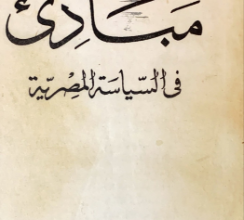 مَبَادِئ
فى السِّيَاسَة المِصْرِيَّة